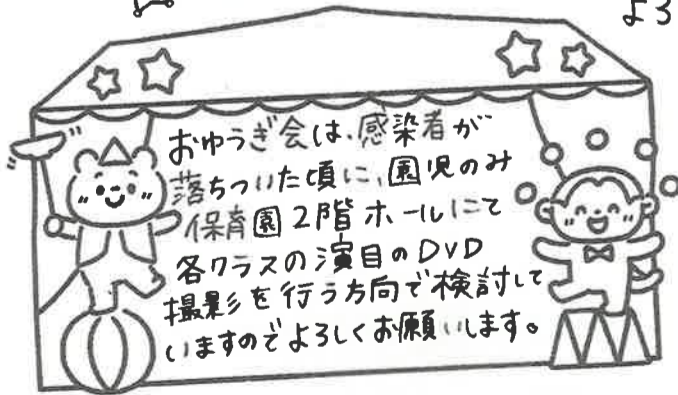 よろ
おゆうぎ会は、感染者が
落ちついた頃に、園児のみ
保育園2階ホールにて
各クラスの演目のDVD
撮影を行う方向で検討して
いますのでよろしくお願いします。